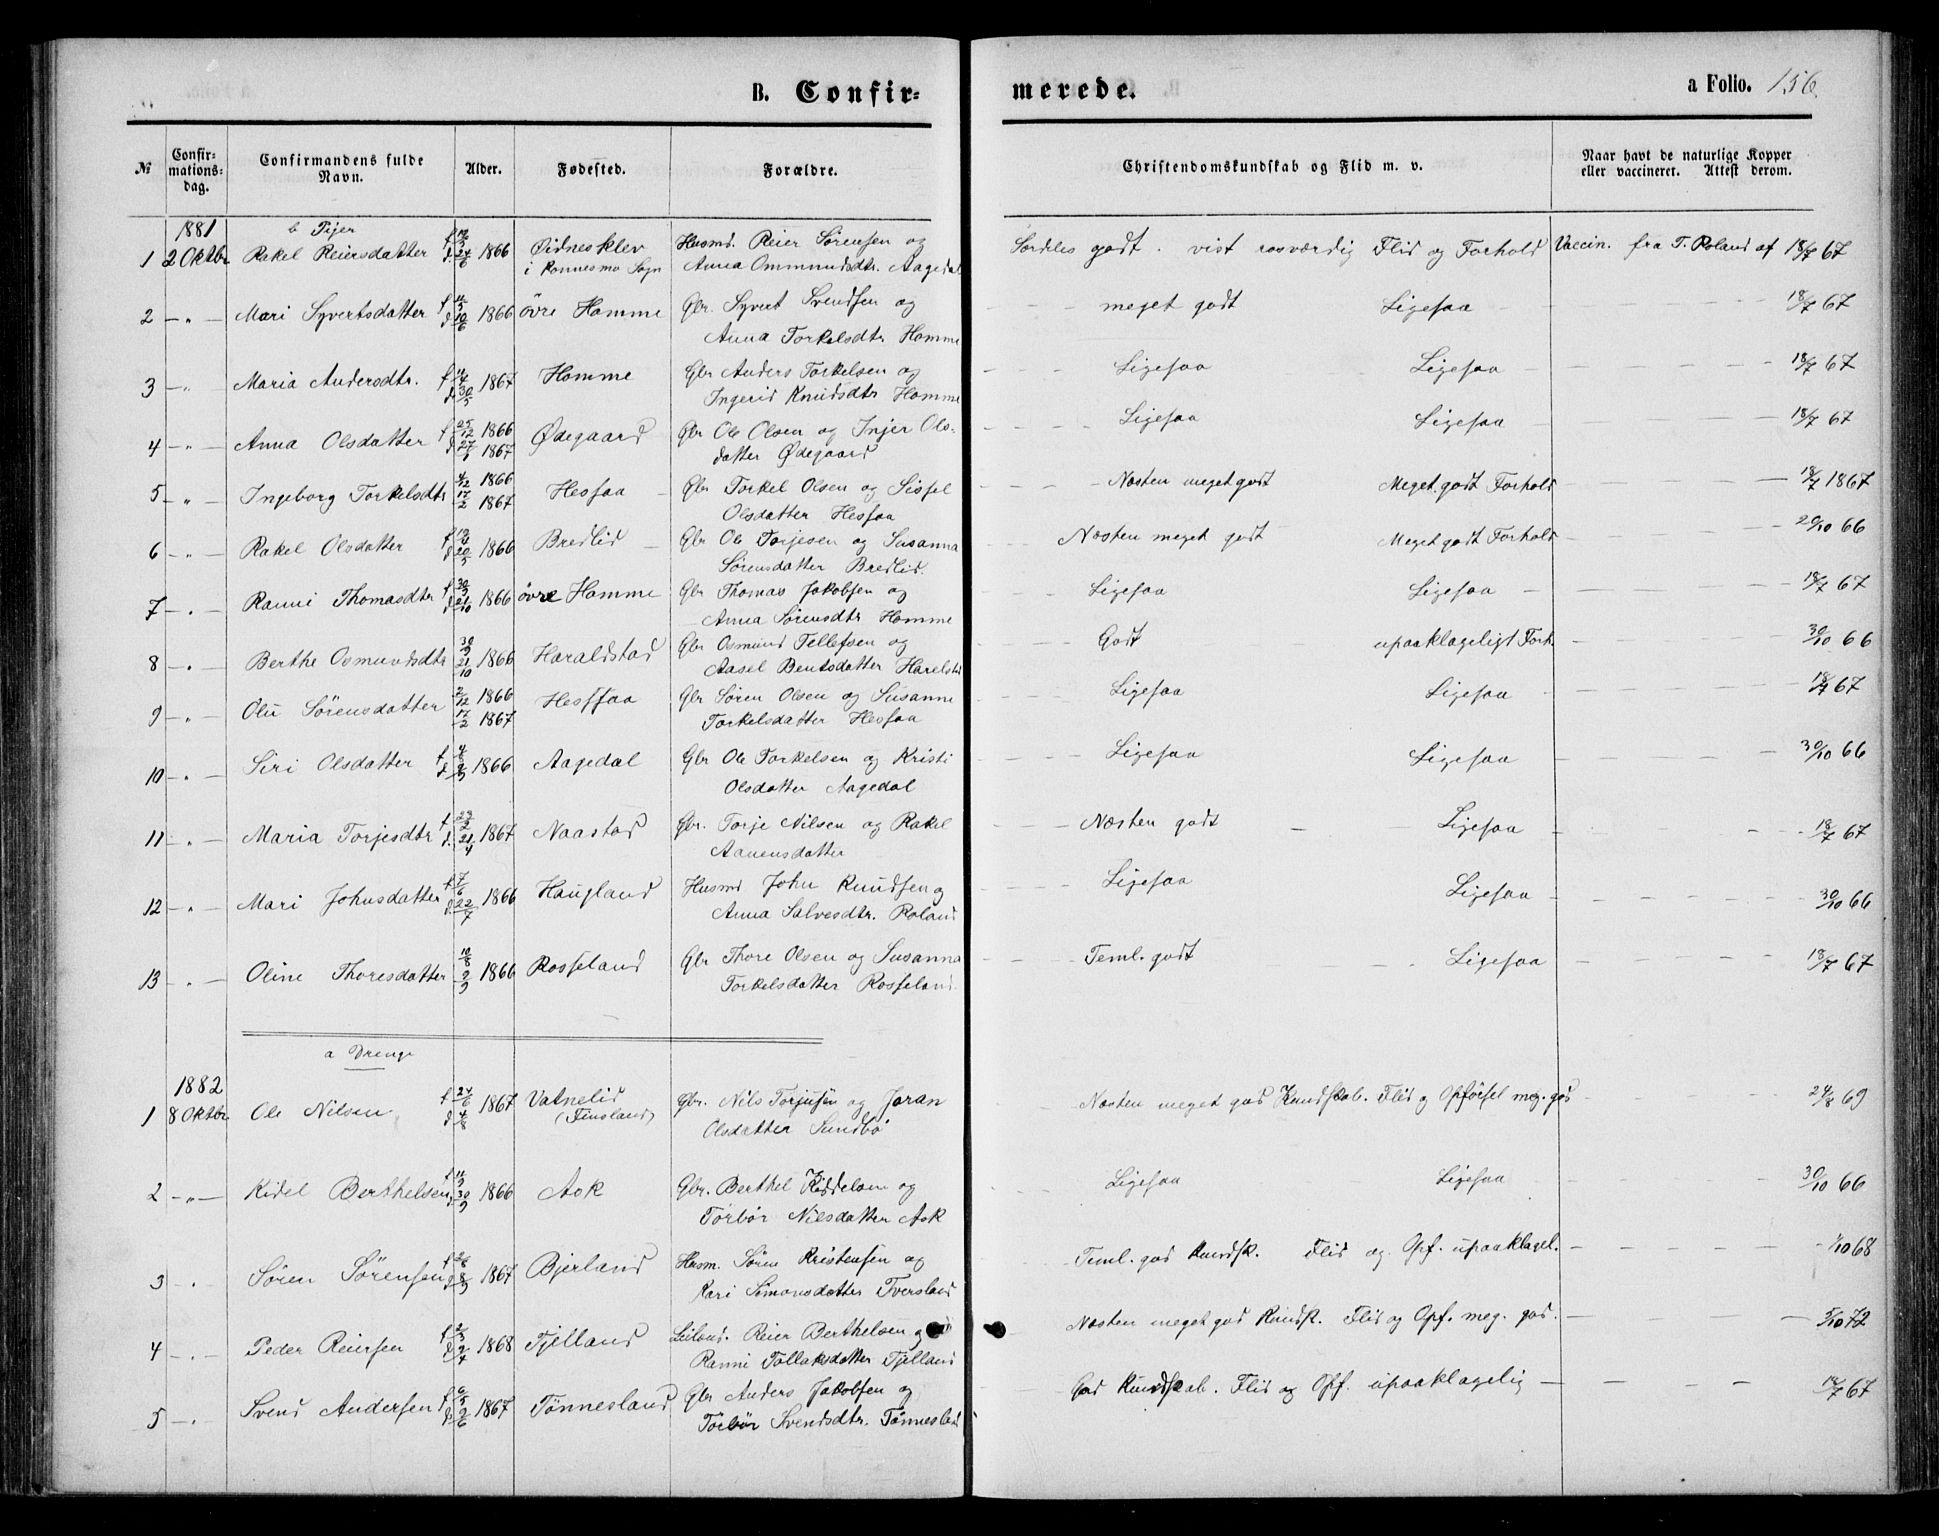 B. Confir=
merede.
a Folio. 156.
№
Confir=
mations=
dag.
Confirmandens fulde
Navn.
Alder.
Fødested.
Forældre.
Christendomskundskab og Flid m. v.
Naar havt de naturlige Kopper
eller vaccineret. Attest derom.
1881
b Piger
1 2 Oktbr Rakel Reiersdatter 1866 Øidnesklev Husmd. Reier Sørensen og Særdeles godt. vist rosværdig Flid og Forhold Vaccin. fra T. Roland af 18/7 67
i Konnesmo Sogn Anna Ommundsdtr. Aagedal
2 — " — Mari Syvertsdatter f d 10/6 1866 övre Homme Gbr. Syvert Svendsen og meget godt Ligesaa 18/7 67
Anna Torkelsdtr Homme
3 — " Maria Andersdtr. f d 30/5 1867 Homme Gbr Anders Torkelsen og Ligesaa Ligesaa 18/7 67
Ingerid Knudsdtr Homme
4 — " — Anna Olsdatter f 25/12 1866 d 27/1 1867 Ødegaard Gbr Ole Olsen og Injer Ols- Ligesaa Ligesaa 18/7 67
datter Ødegaard
5 — " — Ingeborg Torkelsdtr 4/12 1866 17/2 1867 Hessaa Gbr Torkel Olsen og Sissel Næsten meget godt Meget godt Forhold 18/7 1867
Olsdatter Hessaa
6 — " — Rakel Olsdatter f 13/4 d 20/5 1866 Bredlid Gbr Ole Torjesen og Susanna Næsten meget godt Meget godt Forhold 20/10 66
Sørensdatter Bredlid.
7 — " — Ranni Thomasdtr f 30/9 d 21/10 1866 övre Homme Gbr Thomas Jakobsen og Ligesaa Ligesaa 18/7 67
Anna Sørensdtr Homme
8 — " — Berthe Osmundsdtr 30/9 21/10 1866 Haraldstad Gbr Osmund Tellefsen og Godt upaaklageligt Forh. 30/10 66
Aasel Bentsdatter Harelstad
9 — " — Olu Sørensdatter 2/12 1866 17/2 1867 Hessaa Gbr Søren Olsen og Susanne Ligesaa Ligesaa 18/7 67
Torkelsdatter Hesaa
10 — " — Siri Olsdatter f 4/8 d 2/9 1866 Aagedal Gbr Ole Torkelsen og Kristi Ligesaa Ligesaa 30/10 66
Olsdatter Aagedal
11 — " — Maria Torjesdtr f 23/2 d. 21/4 1867 Naastad Gbr. Torje Nilsen og Rakel Næsten godt Ligesaa 18/7 67
Aanensdatter
12 — " — Mari Johnsdatter f 7/6 d. 22/7 1866 Haugland Husmd John Knudsen og Ligesaa Ligesaa 30/10 66
Anna Salvesdtr. Roland
13 — " — Oline Thoresdatter 10/8 2/9 1866 Rosseland Gbr Thore Olsen og Susanna Teml. godt Ligesaa 18/7 67
Torkelsdatter Rosseland.
a Drenge
1882
1 8 Oktbr Ole Nilsen f 24/6 d 4/8 1867 Vatnelid Gbr. Nils Torjusen og Joran Næsten meget god Kundskab. Flid og Opførsel meg. god 24/8 69
(Finsland) Olsdatter Sundbø
2 — " — Kidel Berthelsen f 11/9 d 30/9 1866 Ask Gbr. Berthel Kiddelsen og Ligesaa Ligesaa 30/10 66
Torbør Nilsdatter Ask
3 " Søren Sørensen f 2/8 d 8/9 1867 Bjerland Husm. Søren Kristensen og Teml. god Kundsk. Flid og Opf. upaaklagel. 1/10 68
Kari Simonsdatter Tversland
4 — " — Peder Reiersen f 2/3 d 2/4 1868 Fjelland Leilænd. Reier Berthelsen og Næsten meget god Kundsk. Flid og Opf. meg. god. 5/10 72
Ranni Tollaksdatter Fjelland
5 — " Svend Andersen f 6/5 d 2/6 1867 Tönnesland Gbr Anders Jakobsen og God Kundskab. Flid og Opf. upaaklagelig 18/7 67
Törbör Svendsdtr. Tönnesland